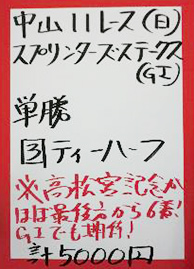 中山11レース(日)
スプリンターズステークス
(GI)
単勝
③ティーハーフ
※高松宮記念が
ほぼ最後方から6着!
GIでも期待!
計5000円